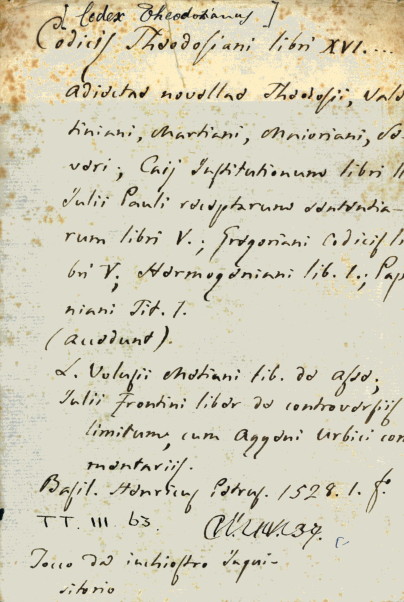 [Codex Theodosianus]
Codicis Theodosiani libri XVI....
adiectae novellae Theodosii, Vale
tiniani, Martiani, Maioriani, Se
veri; Caij Institutionum libri I
Julii Pauli receptarum sententia-
rum libri V.; Gregoriani Codicis li
bri V, Hermogeniani lib. 1.; Pap
niani Tit. 1.
(accedunt).
L. Volusii Metiani lib. de asse;
Julii Frontini liber de controversiis
limitum, cum Aggeni Urbici com
mentariis.
Basil. Henricus Petrus. 1528. 1. fo.
TT. III 63.
Tocco da inchiostro Inqui-
sitorio